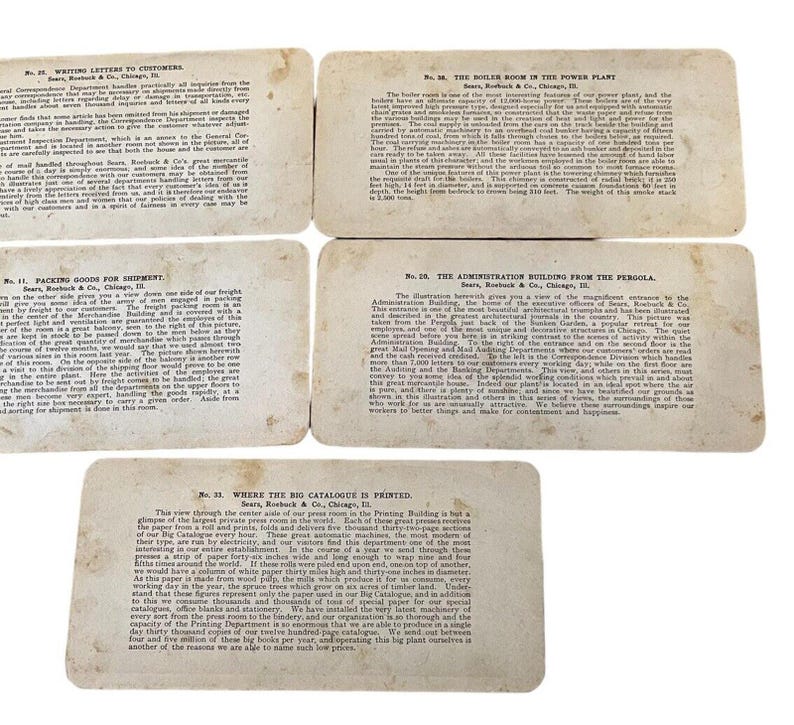 No. 25. WRITING LETTERS TO CUSTOMERS.
Sears, Roebuck & Co., Chicago, Ill.
eral Correspondence Department handles practically all inquiries from the
any correspondence that may be necessary on shipments made directly from
ouse, including letters regarding delay or damage in transportation, etc.
ent handles about seven thousand inquiries and letters of all kinds every
omer finds that some article has been omitted from his shipment or damaged
rtation company in handling, the Correspondence Department inspects the
ease and takes the necessary action to give the customer whatever just-
ue him.
ustment Inspection Department, which is an annex to the General Cor-
partment and is located in another room not shown in the picture, all of
ts are carefully inspected to see that both the house and the customer are
e of mail handled throughout Sears, Roebuck & Co.'s great mercantile
e course of a day is simply enormous; and some idea of the number of
o handle this correspondence with our customers may be obtained from
h illustrates just one of several departments handling letters from our
have a lively appreciation of the fact that every customer's idea of us is
entirely from the letters received from us, and it is therefore our endeavor
vices of high class men and women that our policies of dealing with the
with our customers and in a spirit of fairness in every case may be
out.
No. 38. THE BOILER ROOM IN THE POWER PLANT
Sears, Roebuck & Co., Chicago, Ill.
The boiler room is one of the most interesting features of our power plant, and the
boilers have an ultimate capacity of 12,000-horse power. These boilers are of the very
latest improved high pressure type, designed especially for us and equipped with automatic
chain grates and smokeless furnaces, so constructed that the waste paper and refuse from
the various buildings may be used in the creation of heat and light and power for the
premises. The coal supply is unloaded from the cars on the truck beside the building and
carried by automatic machinery to an overhead coal bunker having a capacity of fifteen
hundred tons of coal, from which it falls through chutes to the boilers below, as required.
The coal carrying machinery in the boiler room has a capacity of one hundred tons per
hour. The refuse and ashes are automatically conveyed to an ash bunker and deposited in the
cars ready to be taken away. All these facilities have lessened the amount of hand labor
usual in plants of this character, and the workmen employed in the boiler room are able to
maintain the steam pressure without the arduous toil so common to most furnace rooms.
One of the unique features of this power plant is the towering chimney which furnishes
the requisite draft for the boilers. This chimney is constructed of radial brick; it is 250
feet high, 14 feet in diameter, and is supported on concrete caisson foundations 60 feet in
depth, the height from bedrock to crown being 310 feet. The weight of this smoke stack
is 2,500 tons.
No. 11. PACKING GOODS FOR SHIPMENT.
Sears, Roebuck & Co., Chicago, Ill.
wn on the other side gives you a view down one side of our freight
will give you some idea of the army of men engaged in packing
ment by freight to our customers. The freight packing room is an
in the center of the Merchandise Building and is covered with a
t perfect light and ventilation are guaranteed the employes of this
er of the room is a great balcony, seen to the right of this picture,
s are kept in stock to be passed down to the men below as they
dication of the great quantity of merchandise which passes through
he course of twelve months, we would say that we used almost two
of various sizes in this room last year. The picture shown herewith
e of this room. On the opposite side of the balcony is another row
a visit to this division of the shipping floor would prove to be one
g in the entire plant. Here the activities of the employes are
rchandise to be sent out by freight comes to be handled; the great
ng the merchandise from all the departments on the upper floors to
ese men become very expert, handling the goods rapidly, at a
the right size box necessary to carry a given order. Aside from
nd sorting for shipment is done in this room.
No. 20. THE ADMINISTRATION BUILDING FROM THE PERGOLA.
Sears, Roebuck & Co., Chicago, Ill.
The illustration herewith gives you a view of the magnificent entrance to the
Administration Building, the home of the executive offices of Sears, Roebuck & Co.
This entrance is one of the most beautiful architectural triumphs and has been illustrated
and described in the greatest architectural journals in the country. This picture was
taken from the Pergola just back of the Sunken Garden, a popular retreat for our
employes, and one of the most unique and decorative structures in Chicago. The quiet
scene spread before you here is in striking contrast to the scenes of activity within the
Administration Building. To the right of the entrance and on the second floor is the
great Mail Opening and Mail Auditing Departments where our customers' orders are read
and the cash received credited. To the left is the Correspondence Division which handles
more than 7,000 letters to our customers every working day; while on the first floor are
the Auditing and the Banking Departments. This view, and others in this series, must
convey to you some idea of the splendid working conditions which prevail in and about
this great mercantile house. Indeed our plant is located in an ideal spot where the air
is pure, and there is plenty of sunshine; and since we have beautified our grounds as
shown in this illustration and others in this series of views, the surroundings of those
who work for us are unusually attractive. We believe these surroundings inspire our
workers to better things and make for contentment and happiness.
No. 33. WHERE THE BIG CATALOGUE IS PRINTED.
Sears, Roebuck & Co., Chicago, Ill.
This view through the center aisle of our press room in the Printing Building is but a
glimpse of the largest private press room in the world. Each of these great presses receives
the paper from a roll and prints, folds and delivers five thousand thirty-two-page sections
of our Big Catalogue every hour. These great automatic machines, the most modern of
their type, are run by electricity, and our visitors find this department one of the most
interesting in our entire establishment. In the course of a year we send through these
presses a strip of paper forty-six inches wide and long enough to wrap nine and four
fifths times around the world. If these rolls were piled end upon end, one on top of another,
we would have a column of white paper thirty miles high and thirty-one inches in diameter.
As this paper is made from wood pulp, the mills which produce it for us consume, every
working day in the year, the spruce trees which grow on six acres of timber land. Under-
stand that these figures represent only the paper used in our Big Catalogue, and in addition
to this we consume thousands and thousands of tons of special paper for our special
catalogues, office blanks and stationery. We have installed the very latest machinery of
every sort from the press room to the bindery, and our organization is so thorough and the
capacity of the Printing Department is so enormous that we are able to produce in a single
day thirty thousand copies of our twelve hundred-page catalogue. We send out between
four and five million of these big books per year, and operating this big plant ourselves is
another of the reasons we are able to name such low prices.